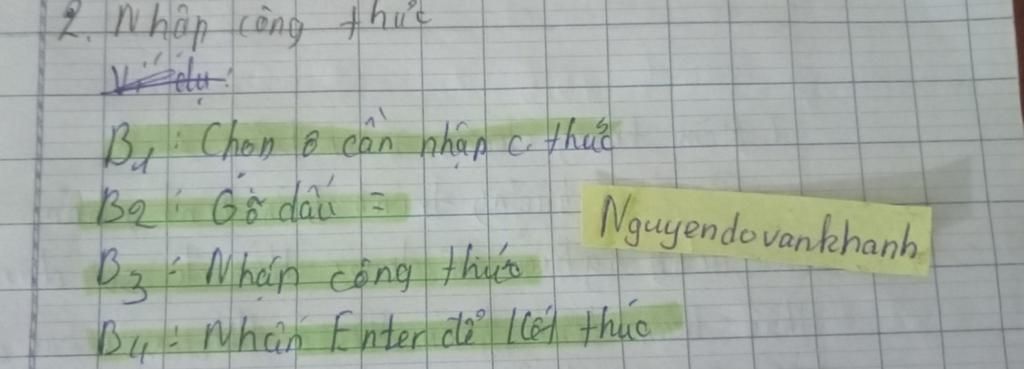 2. Nhập công thức
Ví dụ:
B1: Chọn ô cần nhập c. thức
B2: Gõ dấu =
Nguyendovankhanh
B3: Nhập công thức
B4: Nhấn Enter để kết thúc